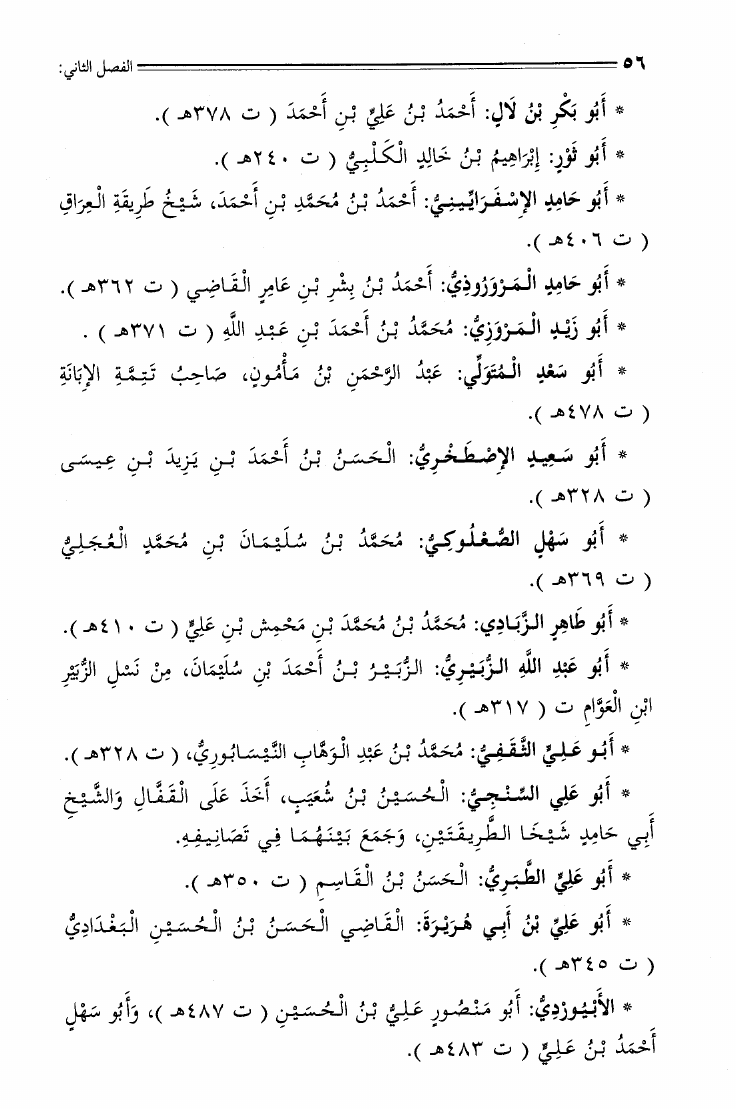 ٥٦ الفصل الثاني:
* أَبُو بَكْرِ بْنُ لَالٍ: أَحْمَدُ بْنُ عَلِيِّ بْنِ أَحْمَدَ ( ت ٣٧٨هـ ).
* أَبُو ثَوْرٍ: إِبْرَاهِيمُ بْنُ خَالِدٍ الْكَلْبِيُّ ( ت ٢٤٠هـ ).
* أَبُو حَامِدٍ الإِسْفَرَايِينِيُّ: أَحْمَدُ بْنُ مُحَمَّدِ بْنِ أَحْمَدَ، شَيْخُ طَرِيقَةِ الْعِرَاقِ
( ت ٤٠٦هـ ).
* أَبُو حَامِدٍ الْمَرْوَرُوذِيُّ: أَحْمَدُ بْنُ بِشْرِ بْنِ عَامِرٍ الْقَاضِي ( ت ٣٦٢هـ ).
* أَبُو زَيْدٍ الْمَرْوَزِيُّ: مُحَمَّدُ بْنُ أَحْمَدَ بْنِ عَبْدِ اللَّهِ ( ت ٣٧١هـ ) .
* أَبُو سَعْدٍ الْمُتَوَلِّي: عَبْدُ الرَّحْمَنِ بْنُ مَأْمُونٍ، صَاحِبُ تَتِمَّةِ الإِبَانَةِ
( ت ٤٧٨هـ ).
* أَبُو سَعِيدٍ الإِصْطَخْرِيُّ: الْحَسَنُ بْنُ أَحْمَدَ بْنِ يَزِيدَ بْنِ عِيسَى
( ت ٣٢٨هـ ).
* أَبُو سَهْلٍ الصُّعْلُوكِيُّ: مُحَمَّدُ بْنُ سُلَيْمَانَ بْنِ مُحَمَّدٍ الْعُجَلِيُّ
( ت ٣٦٩هـ ).
* أَبُو طَاهِرٍ الزَّبَادِي: مُحَمَّدُ بْنُ مُحَمَّدَ بْنِ مَحْمِش بْنِ عَلِيٍّ ( ت ٤١٠هـ ).
* أَبُو عَبْدِ اللَّهِ الزُّبَيْرِيُّ: الزُّبَيْرُ بْنُ أَحْمَدَ بْنِ سُلَيْمَانَ، مِنْ نَسْلِ الزُّبَيْرِ
ابْنِ الْعَوَّامِ ت ( ٣١٧هـ ).
* أَبُو عَلِيٍّ الثَّقَفِيُّ: مُحَمَّدُ بْنُ عَبْدِ الْوَهَّابِ النَّيْسَابُورِيُّ، ( ت ٣٢٨هـ ).
* أَبُو عَلِي السِّنْجِيُّ: الْحُسَيْنُ بْنُ شُعَيَبٍ، أَخَذَ عَلَى الْقَفَّالِ وَالشَّيْخِ
أَبِي حَامِدٍ شَيْخَا الطَّرِيقَتَيْنِ، وَجَمَعَ بَيْنَهُمَا فِي تَصَانِيفِهِ.
* أَبُو عَلِيٍّ الطَّبَرِيُّ: الْحَسَنُ بْنُ الْقَاسِمِ ( ت ٣٥٠هـ ).
* أَبُو عَلِيِّ بْنُ أَبِي هُرَيْرَةَ: الْقَاضِي الْحَسَنُ بْنُ الْحُسَيْنِ الْبَغْدَادِيُّ
( ت ٣٤٥هـ ).
* الأَبْيُورْدِيُّ: أَبُو مَنْصُورٍ عَلِيُّ بْنُ الْحُسَيْنِ ( ت ٤٨٧هـ )، وَأَبُو سَهْلٍ
أَحْمَدُ بْنُ عَلِيٍّ ( ت ٤٨٣هـ ).